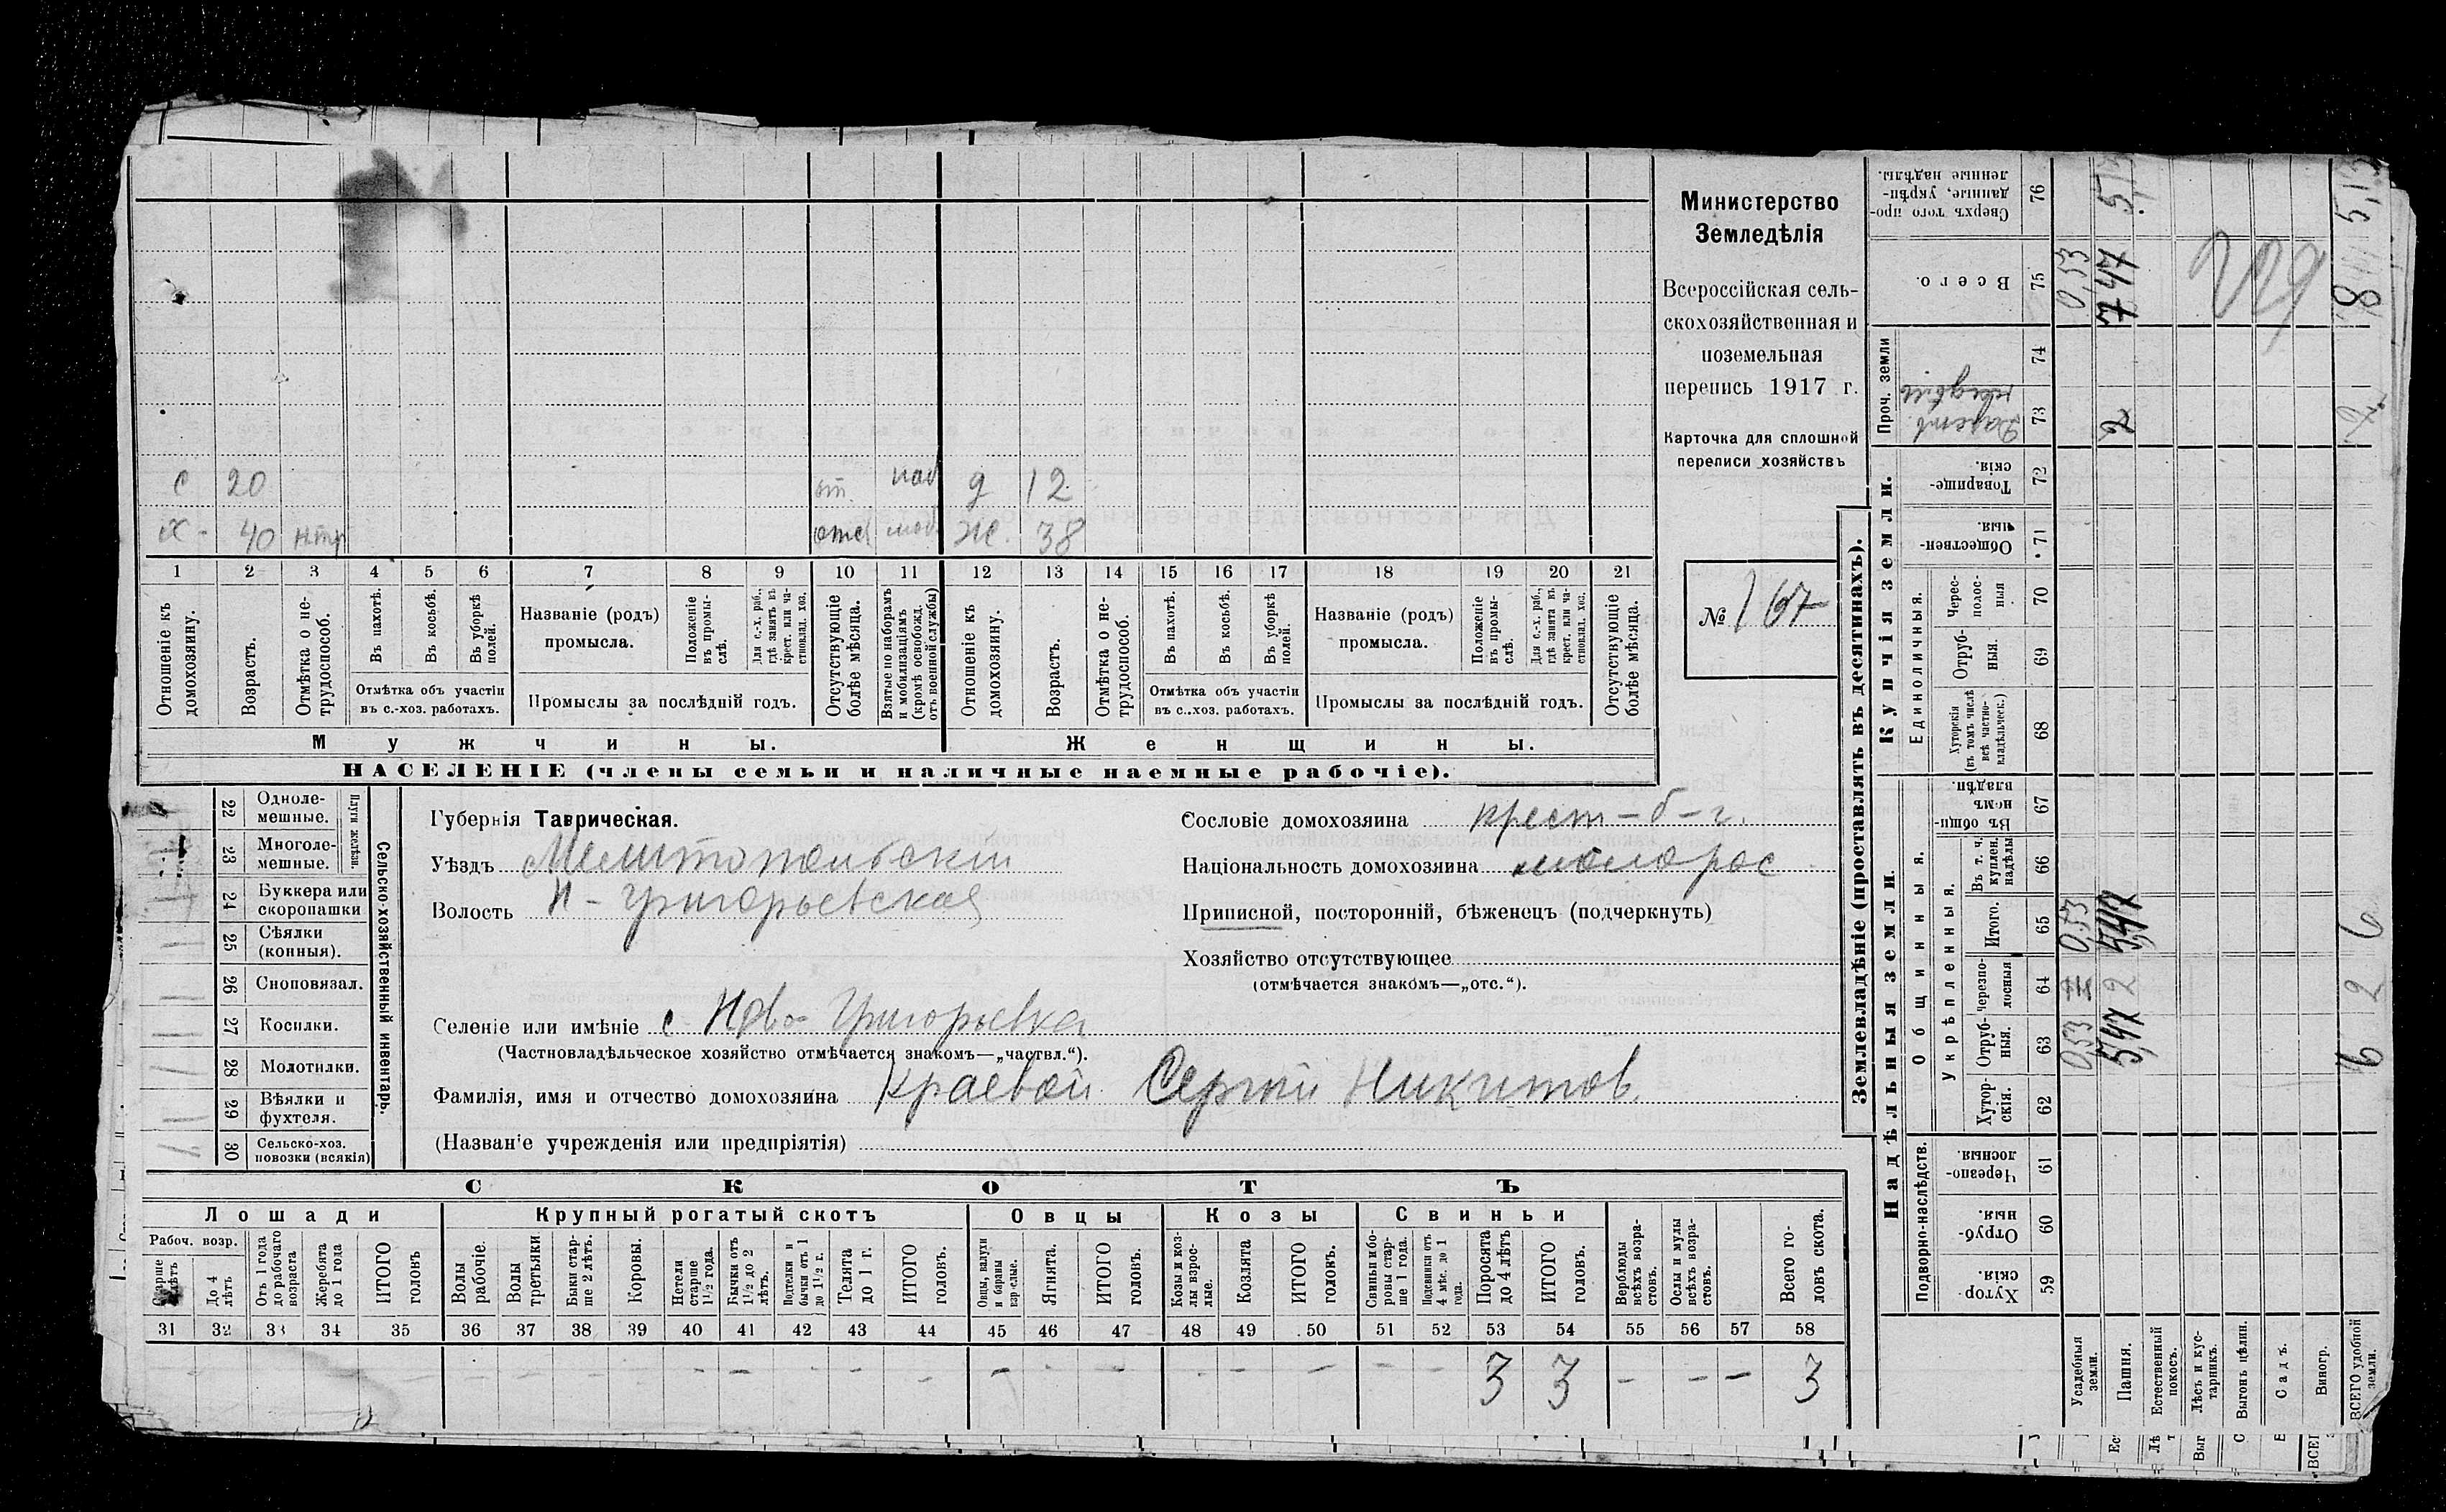 Министерство
Земледѣлія
Всероссійская сель-
скохозяйственная и
поземельная
перепись 1917 г.
Карточка для сплошной
переписи хозяйствъ
№ 167
с 20 д 12
х - 40 отс моб Ж. 38
1 2 3 4 5 6 7 8 9 10 11 12 13 14 15 16 17 18 19 20 21
Отношеніе къ домохозяину.
Возрастъ.
Отмѣтка о не-трудоспособ.
Въ пахотѣ.
Въ косьбѣ.
Въ уборкѣ полей.
Отмѣтка объ участіи
въ с.-хоз. работахъ.
Названіе (родъ)
промысла.
Положеніе въ промы-слѣ.
Для с.-х. раб., гдѣ занятъ въ крест. или ча-стновлад. хоз.
Промыслы за послѣдній годъ.
Отсутствующіе болѣе мѣсяца.
Взятые по наборамъ и мобилизаціямъ (кромѣ освобожд. отъ военной службы)
Отношеніе къ домохозяину.
Возрастъ.
Отмѣтка о не-трудоспособ.
Въ пахотѣ.
Въ косьбѣ.
Въ уборкѣ полей.
Отмѣтка объ участіи
въ с..хоз. работахъ.
Названіе (родъ)
промысла.
Положеніе въ промы-слѣ.
Для с.-х. раб., гдѣ занята въ крест. или ча-стновлад. хоз.
Промыслы за послѣдній годъ.
Отсутствующіе болѣе мѣсяца.
Мужчины. Женщины.
НАСЕЛЕНІЕ (члены семьи и наличные наемные рабочіе).
Сельско-хозяйственный инвентарь.
Плуги желѣзн.
22 Одноле-мешные.
23 Многоле-мешные.
24 Буккера или скоропашки
25 Сѣялки (конныя).
26 Сноповязал.
27 Косилки.
28 Молотилки.
29 Вѣялки и фухтеля.
30 Сельско-хоз. повозки (всякія)
Губернія Таврическая.
Уѣздъ Мелитопольскій
Волость Н-Григорьевская
Селеніе или имѣніе с Ново-Григорьевка
(Частновладѣльческое хозяйство отмѣчается знакомъ—„частвл.“).
Фамилія, имя и отчество домохозяина Краевой Сергій Никитов.
(Названіе учрежденія или предпріятія)
Сословіе домохозяина крест-б-г.
Національность домохозяина малорос
Приписной, посторонній, бѣженецъ (подчеркнуть)
Хозяйство отсутствующее
(отмѣчается знакомъ—„отс.“).
СКОТЪ
Лошади Крупный рогатый скотъ Овцы Козы Свиньи
Рабоч. возр.
Старше лѣтъ
До 4 лѣтъ
Отъ 1 года до рабочаго возраста
Жеребята до 1 года
ИТОГО головъ
Волы рабочіе.
Волы третьяки
Быки стар-ше 2 лѣтъ.
Коровы.
Нетели старше 1½ года.
Бычки отъ 1½ до 2 лѣтъ.
Подтелки и бычки отъ 1 до 1½ г.
Телята до 1 г.
ИТОГО головъ.
Овцы, валухи и бараны взрослые.
Ягнята.
ИТОГО головъ.
Козы и коз-лы взрос-лые.
Козлята
ИТОГО головъ.
Свиньи и бо-ровы стар-ше 1 года.
Подсвинки отъ 4 мѣс. до 1 года.
Поросята до 4 лѣтъ
ИТОГО головъ.
Верблюды всѣхъ возра-стовъ.
Ослы и мулы всѣхъ возра-стовъ.
Всего го-ловъ скота.
31 32 33 34 35 36 37 38 39 40 41 42 43 44 45 46 47 48 49 50 51 52 53 54 55 56 57 58
3 3 - - - 3
Землевладѣніе (проставлять въ десятинахъ).
Надѣльныя земли.
Купчія земли.
Проч. земли
Подворно-наслѣдств.
Общинныя.
Укрѣпленныя.
Единоличныя.
Хутор-скія. 59
Отруб-ныя. 60
Черезпо-лосныя. 61
Хутор-скія. 62
Отруб-ныя. 63
Черезпо-лосныя 64
Итого. 65
Въ т. ч. куплен. надѣлы 66
Въ общи-номъ владѣн. 67
Хуторскія (въ томъ числѣ всѣ частно-владѣльческ.) 68
Отруб-ныя. 69
Черес-полос-ныя 70
Обществен-ныя. 71
Товарище-скія. 72
73
74
Всего. 75
Сверхъ того про-данные, укрѣп-ленные надѣлы. 76
Усадебныя земли. 0,53 0,53 0,53
Пашня. 5,47 2 5,47 2 7 47 5,13
Естественный покосъ.
Лѣсъ и кус-тарникъ.
Выгонъ цѣлин.
Садъ.
Виногр.
ВСЕГО удобной земли. 6 2 6 2 8 5,13